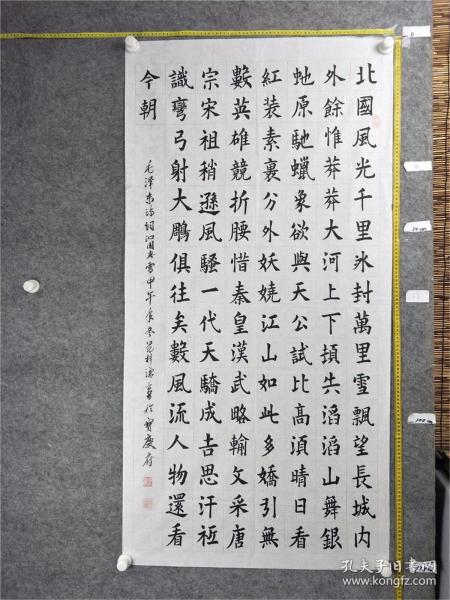 北國風光千里氷封萬里雪飄望長城内
外餘惟莽莽大河上下頓失滔滔山舞銀
虵原馳蠟象欲與天公試比高須晴日看
紅装素裏分外妖嬈江山如此多嬌引無
數英雄競折腰惜秦皇漢武略輸文采唐
宗宋祖稍遜風騷一代天驕成吉思汗祗
識彎弓射大鵰俱往矣數風流人物還看
今朝
毛澤東詩詞沁園春雪甲午年冬書於寶慶府
孔夫子旧书网
www.kongfz.com